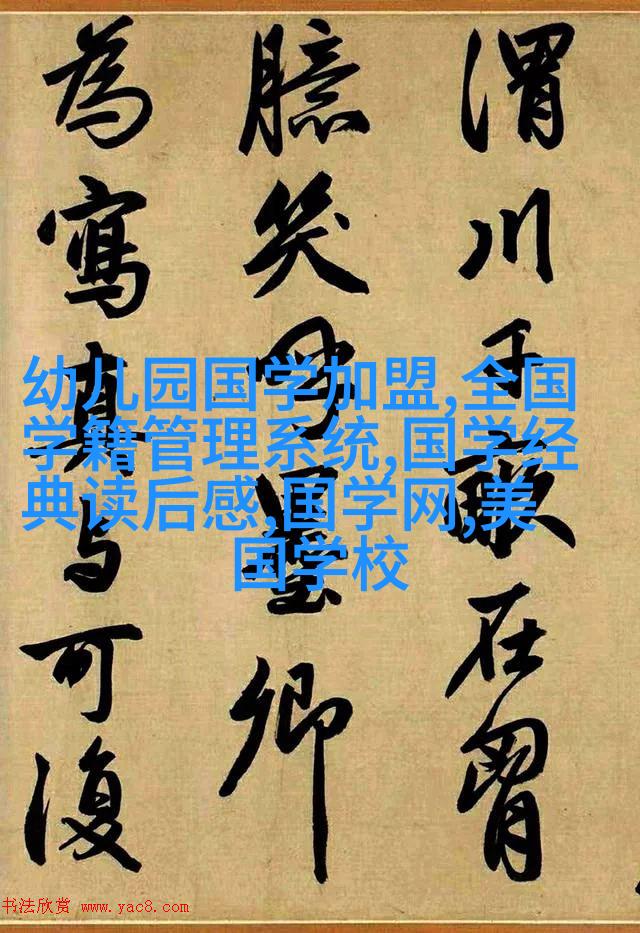 渭川千畝在胷
臆笑呼墨卿
為寫真与可復
幼儿园国学加盟,全国
学籍管理系统,国学经
典读后感,国学网,美
国学校
书法欣赏 www.yac8.com